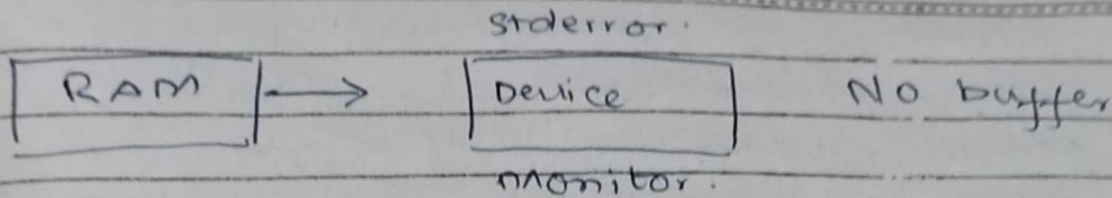 stderror.
RAM → Device No buffer
Monitor.